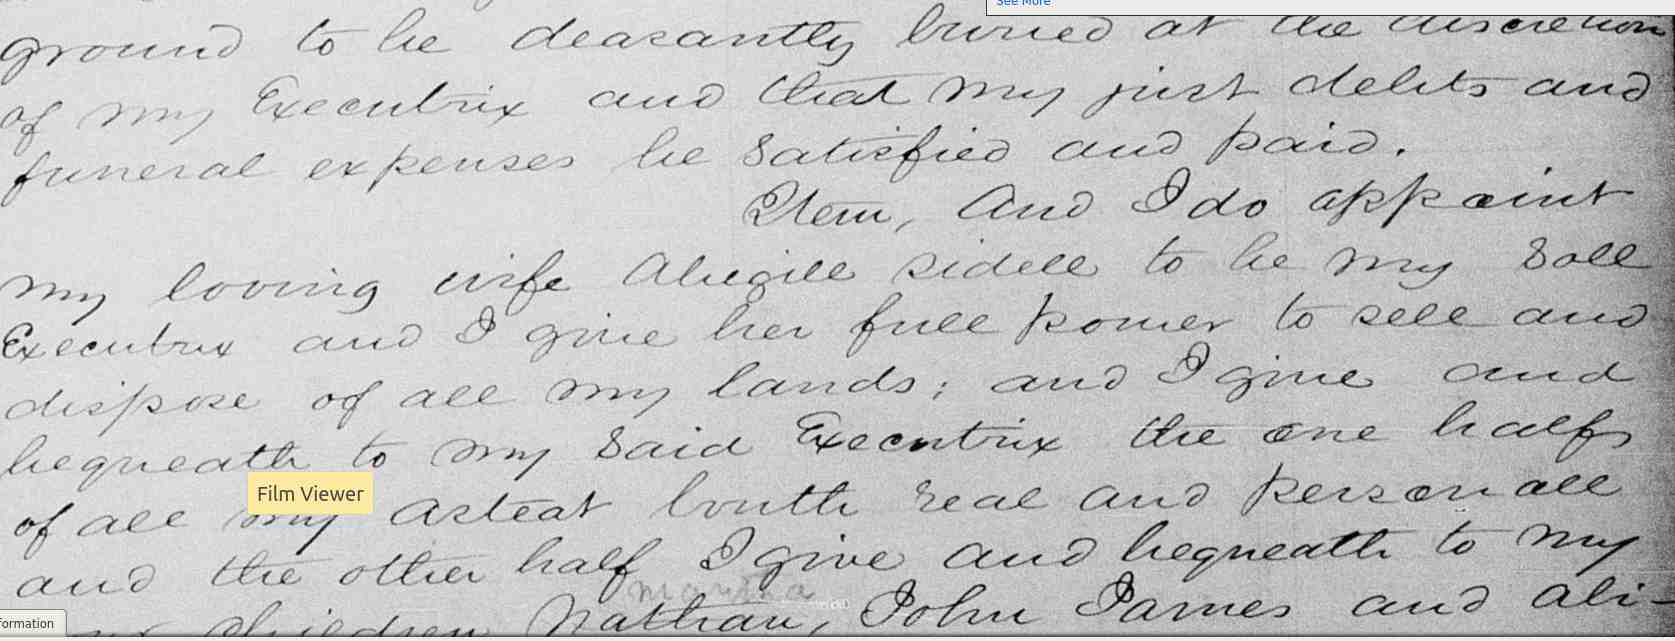 See More
ground to be deasantly buried at the discretion
of my Executrix and that my just debts and
funeral expenses be Satisfied and paid.
Item, And I do appoint
my loving wife Abigill sidell to be my Soll
Executrix and I give her full power to sell and
dispose of all my lands; and I give and
bequeath to my Said Executrix the one half
of all my asteat bouth real and personall
and the other half I give and bequeath to my
martha
children Nathan, John James and abi-
Film Viewer
formation